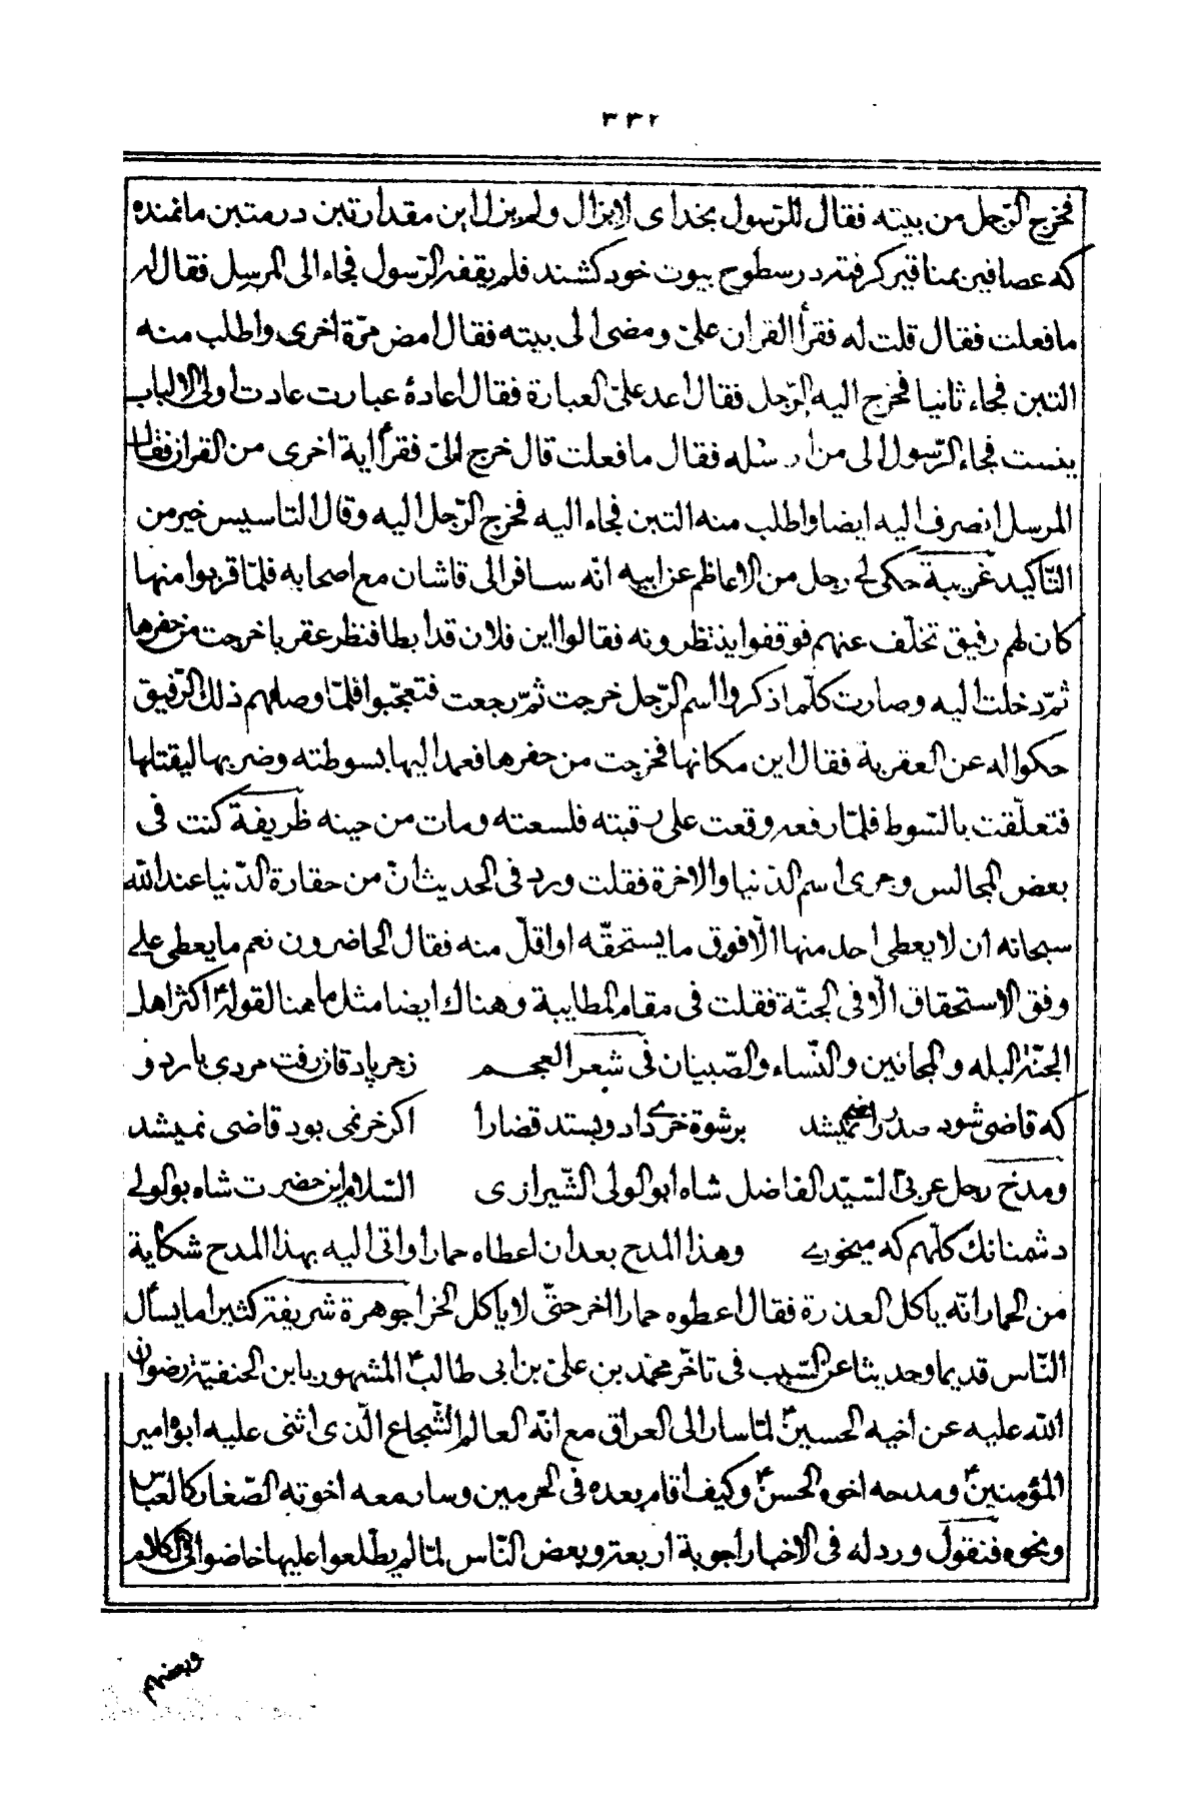 ٣٣٢
فخرج الرّجل من بيته فقال للرّسول بخداى لايزال ولم يزل اين مقدار تبن در متبن ما نمنده
كه عصافين بمناقير كرفته در سطوح بيوت خود كشند فلم يفقه الرّسول فجاء الى المرسل فقال له
ما فعلت فقال قلت له فقرأ القران علىّ ومضى الى بيته فقال امض مرّة اخرى واطلب منه
التبن فجاء ثانيا فخرج اليه الرّجل فقال اعد علىّ العبارة فقال اعادهٔ عبارت عادت اولى الالباب
ينست فجاء الرّسول الى من ارسله فقال ما فعلت قال خرج الىّ فقرأ اية اخرى من القران فقال
المرسل انصرف اليه ايضا واطلب منه التبن فجاء اليه فخرج الرّجل اليه وقال التاسيس خير من
التّاكيد غريبة حكى لى رجل من الاعاظم عن ابيه انّه سافر الى قاشان مع اصحابه فلمّا قربوا منها
كان لهم رفيق تخلّف عنهم فوقفوا ينتظرونه فقالوا اين فلان قد ابطا فنظر عقربا خرجت من حفرها
ثمّ دخلت اليه وصارت كلّما ذكروا اسم الرّجل خرجت ثمّ رجعت فتعجّبوا فلمّا وصلهم ذلك الرّفيق
حكوا له عن العقربة فقال اين مكانها فخرجت من حفرها فعمد اليها بسوطته وضربها ليقتلها
فتعلّقت بالسّوط فلمّا رفعه وقعت على رقبته فلسعته ومات من حينه ظريفة كنت فى
بعض المجالس وجرى اسم الدّنيا والاخرة فقلت ورد فى الحديث انّ من حقارة الدّنيا عند اللّه
سبحانه ان لا يعطى احد منها الّا فوق ما يستحقّه او اقلّ منه فقال الحاضرون نعم ما يعطى على
وفق الاستحقاق الّا فى الجنّة فقلت فى مقام المطايبة وهناك ايضا مثل ما هنا لقوله ع اكثر اهل
الجنّة البله والمجانين والنّساء والصّبيان فى شعر العجم زجر پادقان رفت مردى باردو
كه قاضى شود صدر راضى نميشد برشوة خرى داد وبستد قضارا اكر خر نمى بود قاضى نميشد
ومدح رجل عربىّ السّيّد الفاضل شاه ابو الولى الشّيرازى السّلام اين حضرت شاه بو الولى
دشمنانك كلّهم كه ميخورى وهذا المدح بعد ان اعطاه حمارا واتى اليه بهذا المدح شكاية
من الحمار انّه ياكل العذرة فقال اعطوه حمارا اخر حتّى لا ياكل الخرا جوهرة شريفة كثيرا ما يسأل
النّاس قديما وحديثا عن السّبب فى تاخّر محمّد بن علىّ بن ابى طالب ع المشهور بابن الحنفيّة رضوان
اللّه عليه عن اخيه الحسين ع لمّا سار الى العراق مع انّه العالم الشّجاع الّذى اثنى عليه ابوه امير
المؤمنين ع ومدحه اخوه الحسن ع وكيف اقام بعده فى الحرمين وسار معه اخوته الصّغار كالعبّاس
ونحوه فنقول ورد له فى الاخبار اجوبة اربعة وبعض النّاس لمّا لم يطّلعوا عليها خاضوا فى الكلام
وبعضهم